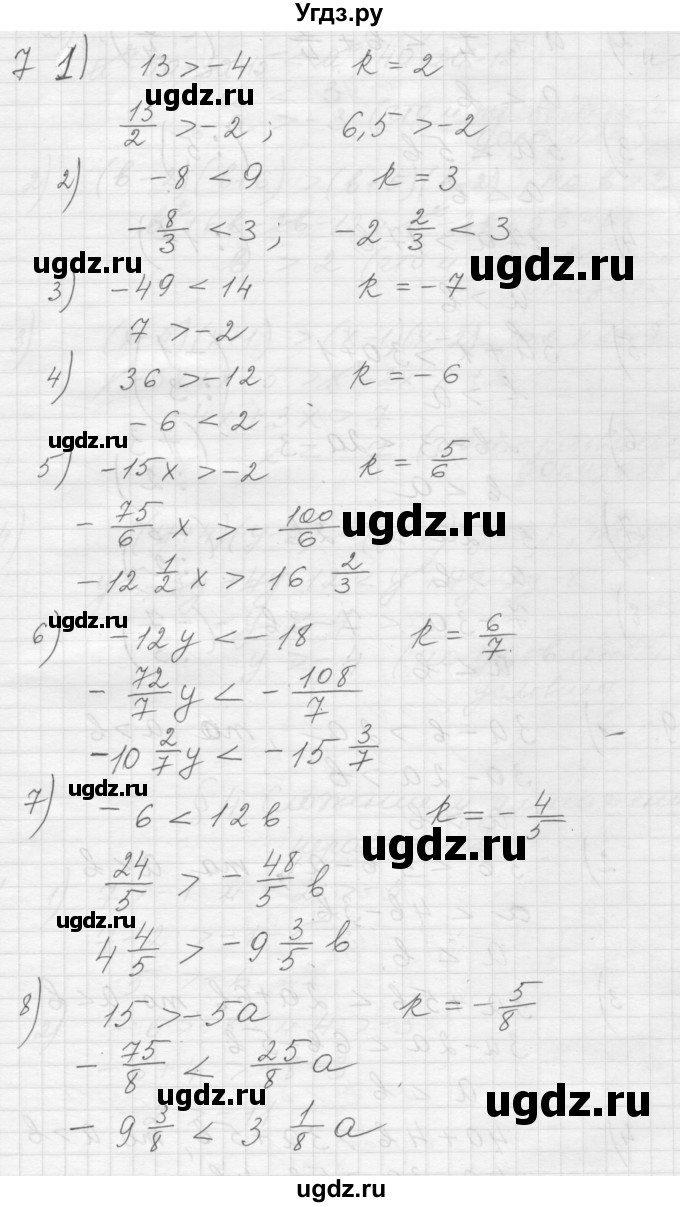 Угдз.ру
7 1) 13 > -4 k = 2
ugdz.ru
13/2 > -2 ; 6,5 > -2
2) -8 < 9 k = 3
-8/3 < 3 ; -2 2/3 < 3
ugdz.ru ugdz.ru
3) -49 < 14 k = -7
7 > -2
4) 36 > -12 k = -6
-6 < 2
ugdz.ru
5) -15x > -2 k = 5/6
-75/6 x > -100/6
ugdz.ru
-12 1/2 x > 16 2/3
ugdz.ru
6) -12y < -18 k = 6/7
-72/7 y < -108/7
-10 2/7 y < -15 3/7
ugdz.ru
7) -6 < 12b k = -4/5
ugdz.ru
24/5 > -48/5 b
ugdz.ru
4 4/5 > -9 3/5 b
8) 15 > -5a k = -5/8
-75/8 < 25/8 a
ugdz.ru ugdz.ru
-9 3/8 < 3 1/8 a
ugdz.ru